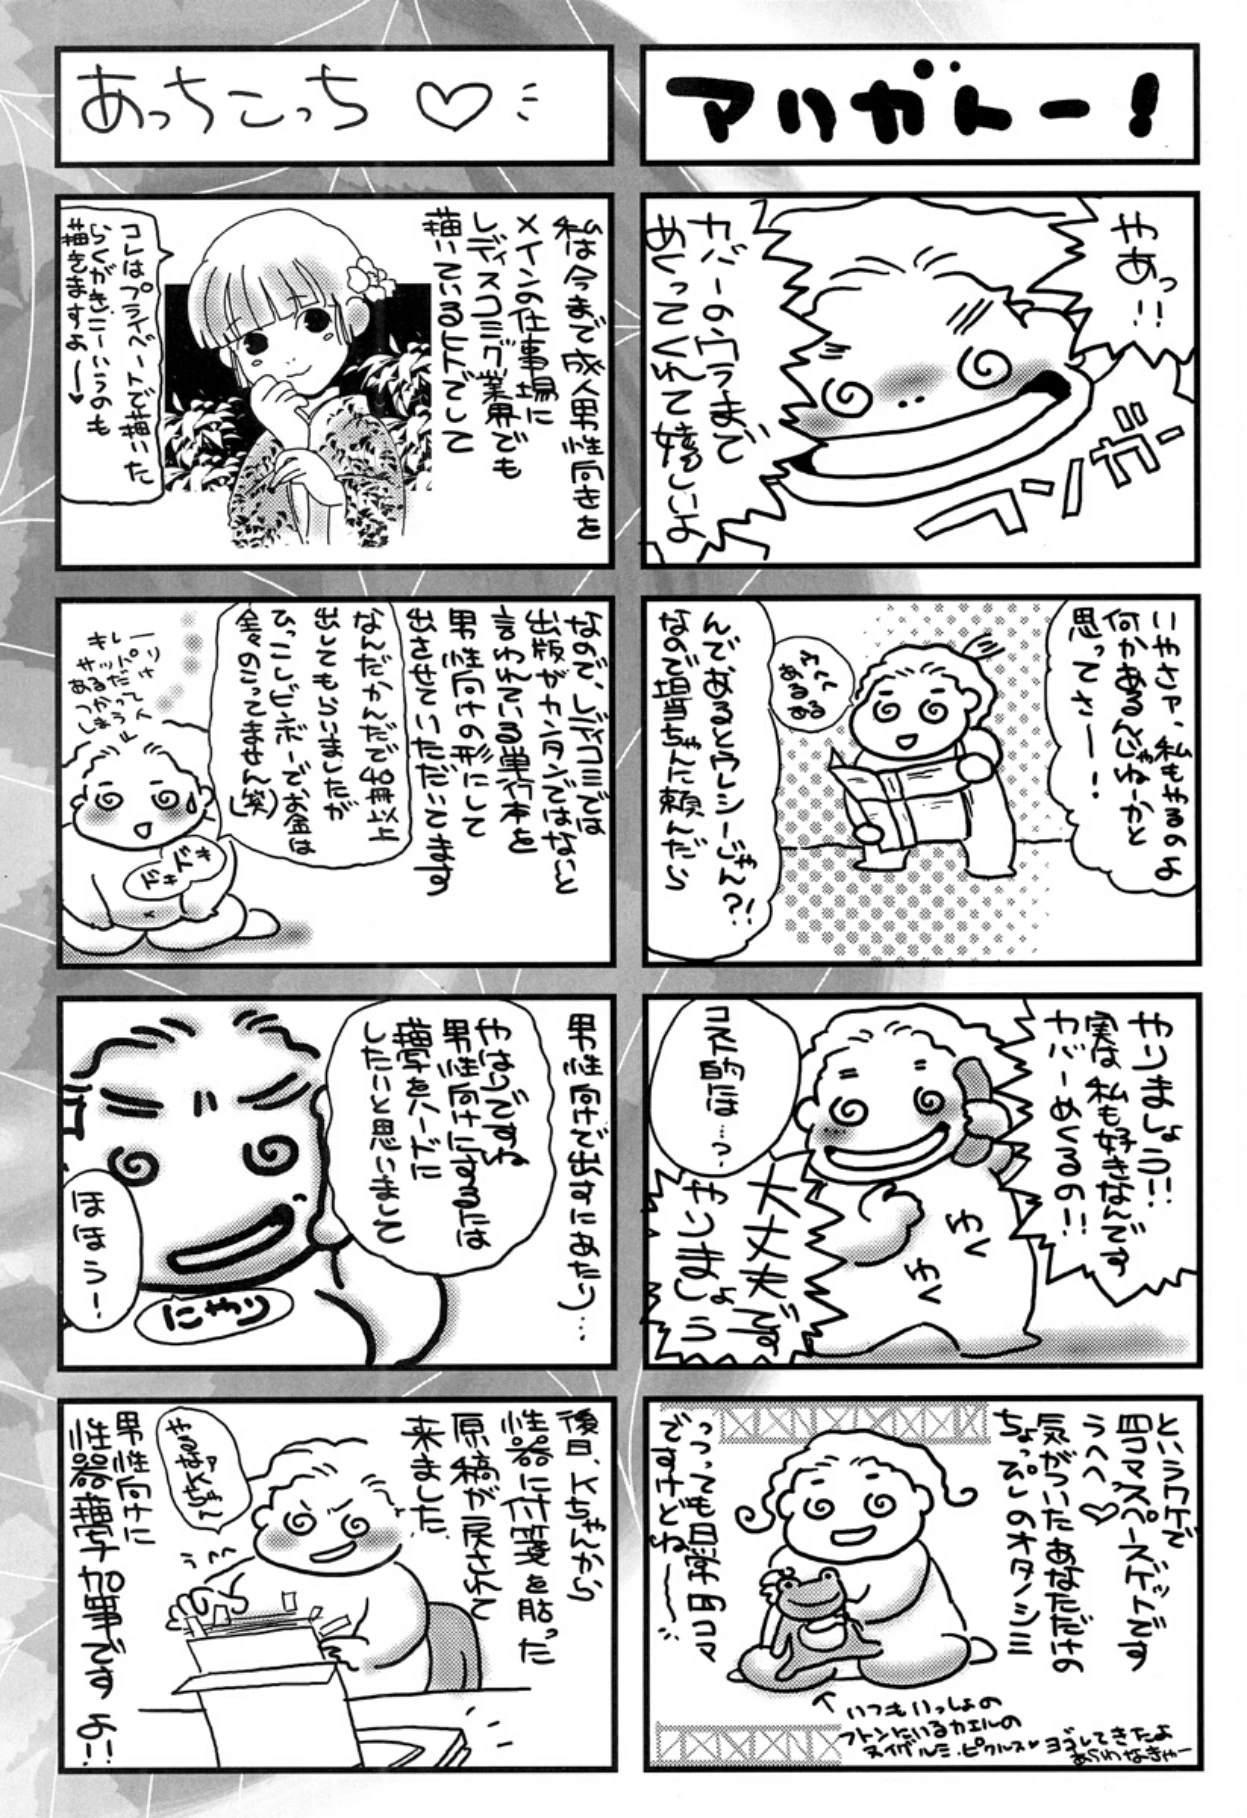 アリガトー!
やあっ!!
カバーのウラまで
めくってくれて嬉しいよ
フンガー
いやさァ、私もやるのよ
何かあるんじゃねーかと
思ってさー!
ウヘヘ
あるある
んであるとウレシーじゃん?!
なので担当ちゃんに頼んだら
やりましょう!!
実は私も好きなんです
カバーめくるの!!
コスト的には…?
ゆく
ゆく
大丈夫です
やりましょう
というワケで
四コマスペースゲットです
うへへ♡
気がついたあなただけの
ちょっぴしのオタノシミ
っつっても日常四コマ
ですけどね〜〜
いつもいっしょの
フトンにいるカエルの
ヌイグルミ・ピクルス♥
ヨゴレてきたよ
あらわなきゃー
あっちこっち ♡
私は今まで成人男性向きを
メインの仕事場に
レディスコミック業界でも
描いているヒトでして
コレはプライベートで描いた
らくがき、こーいうのも
描きますよ〜♥
なので、レディコミでは
出版がカンタンではないと
言われている単行本を
男性向けの形にして
出させていただいてます
なんだかんだで40冊以上
出してもらいましたが
ひっこしビンボーでお金は
全々のこってません(笑)
ドキ
ドキ
男性向けで出すにあたり…
やはりですね
男性向けにするには
描写をハードに
したいと思いまして
ほほう!
にやり
後日、Kちゃんから
性器に付箋を貼った
原稿が戻されて
来ました
やるなァ
Kちゃん
男性向けに
性器描写加筆です よ!!